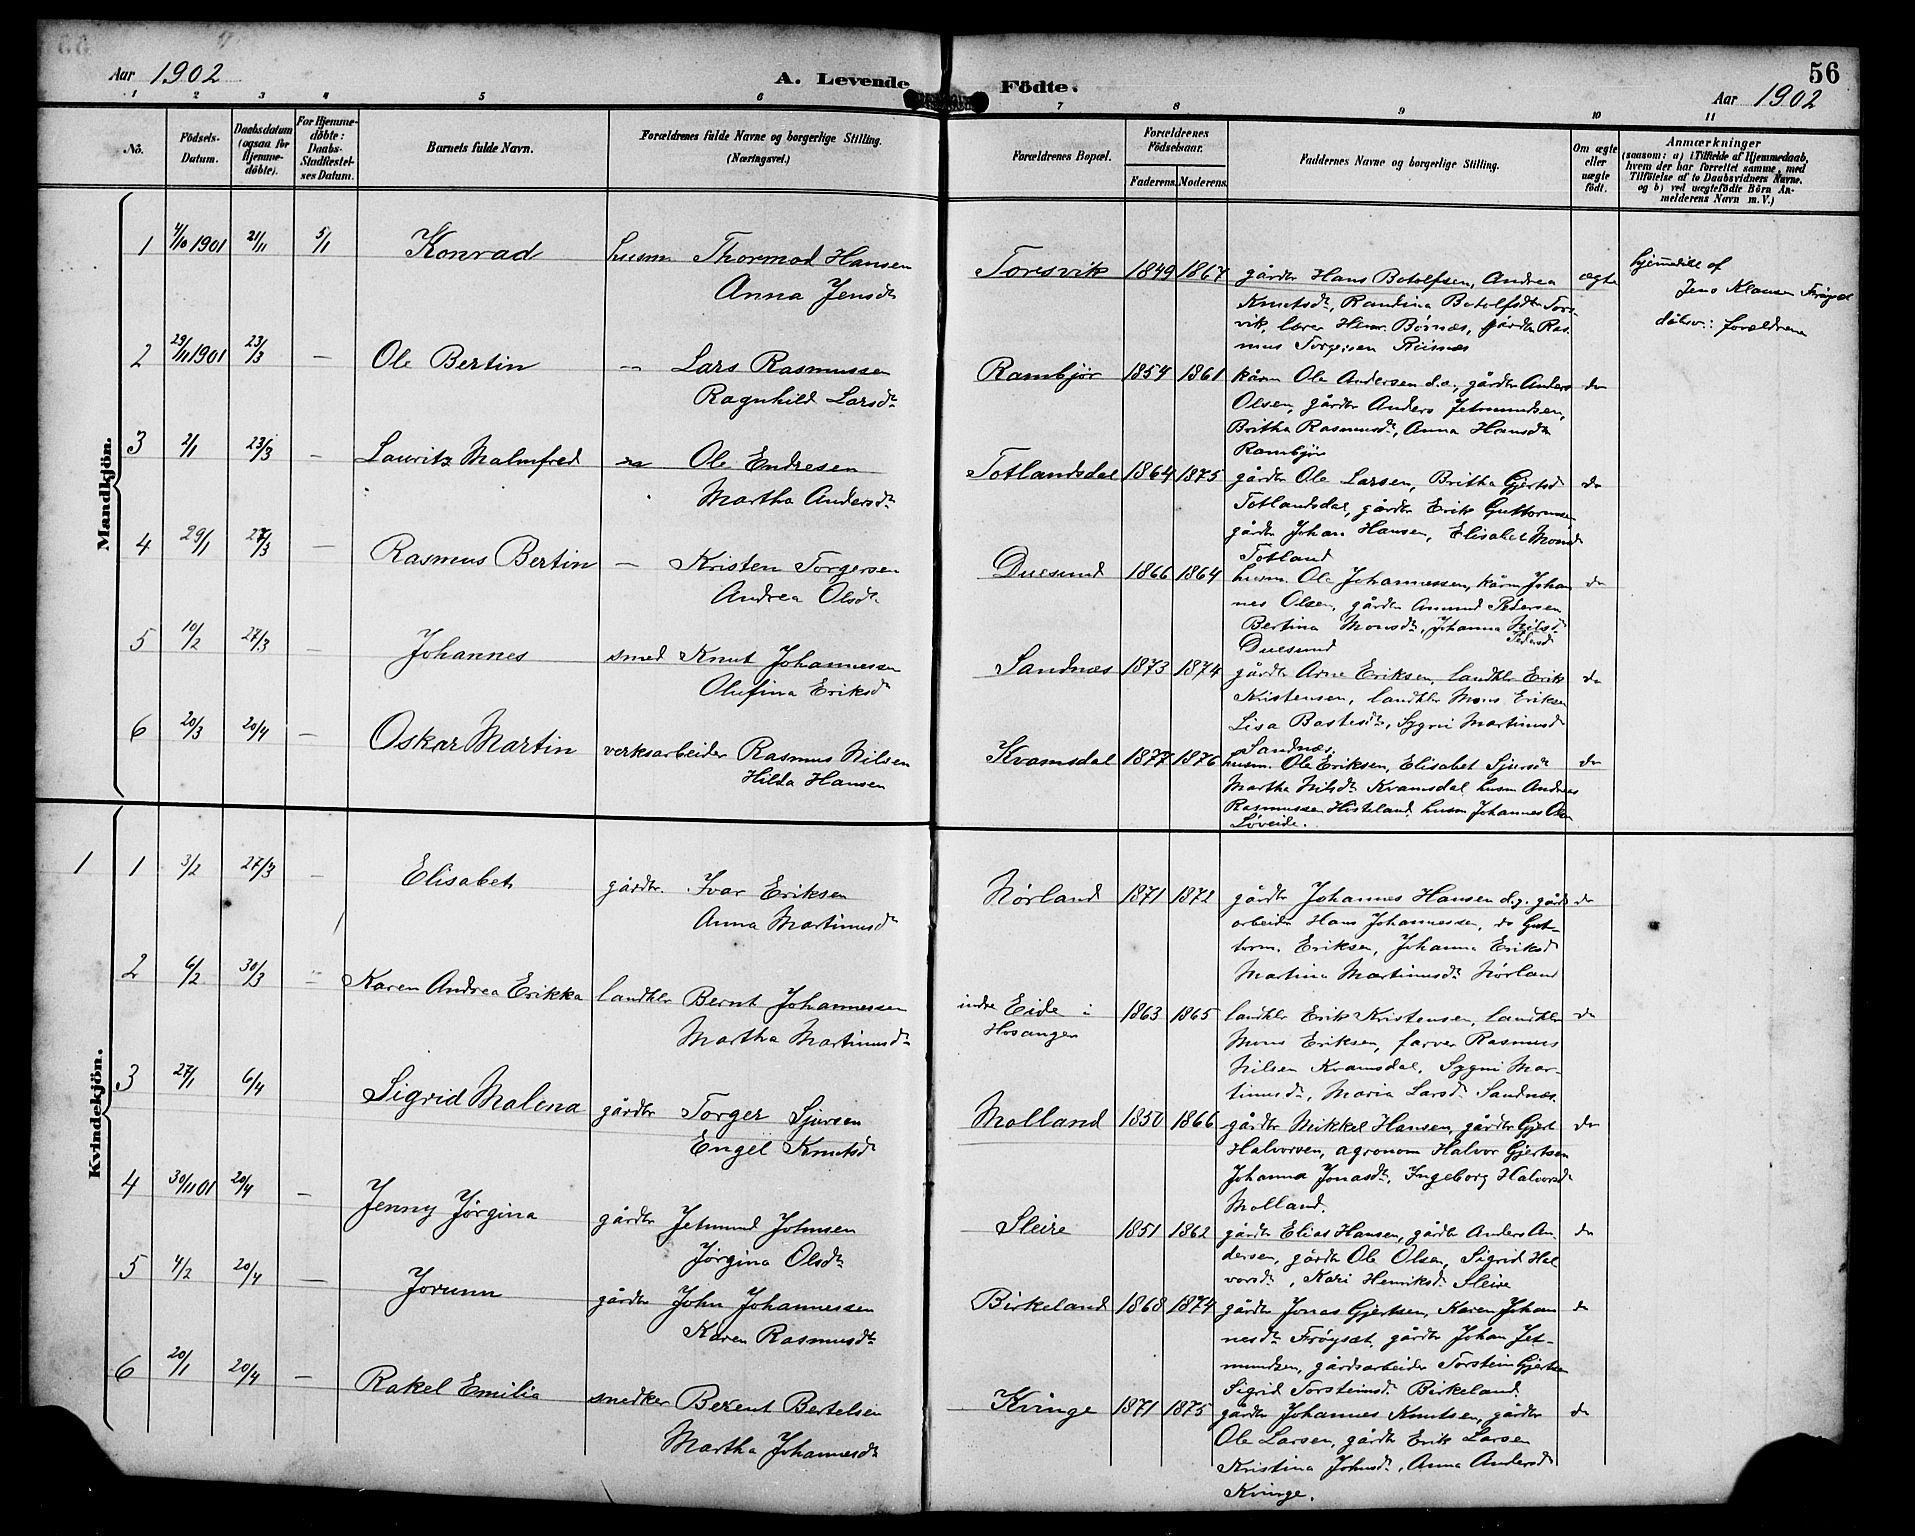 Aar 1902
A. Levende Födte.
56
Aar 1902
1 2 3 4 5 6 7 8 9 10 11
No.
Födsels-Datum.
Daabsdatum (ogsaa for Hjemme-döbte).
For Hjemme-döbte: Daabs-Stadfæstel-ses Datum.
Barnets fulde Navn.
Forældrenes fulde Navne og borgerlige Stilling. (Næringsvei.)
Forældrenes Bopæl.
Forældrenes Födselsaar.
Faderens. Moderens.
Faddernes Navne og borgerlige Stilling.
Om ægte eller uægte födt.
Anmærkninger
(saasom: a) i Tilfælde af Hjemmedaab,
hvem der har forrettet samme, med
Tilföielse af to Daabsvidners Navne,
og b) ved uægtefödte Börn An-
melderens Navn m. V.)
Mandkjön.
1 4/10 1901 21/11 5/1 Konrad husm Thormod Hansen
Anna Jensdtr
Toresvik 1849 1867 gårdbr Hans Botolfsen, Andrea
Knutsdtr, Randina Botolfsdtr Tors-
vik, lærer Henr. Børnæs, gårdbr Ras
mus Torgersen Risnæs
ægte
hjemmedøbt af
Jens Klausen Frøyset
dåbsv.: forældrene
2 29/11 1901 23/3 — Ole Bertin — Lars Rasmussen
Ragnhild Larsdtr
Rambjør 1854 1861 kårm Ole Andersen d.a., gårdbr Anders
Olsen, gårdbr Anders Jetmundsen,
Britha Rasmusdtr, Anna Hansdtr
Rambjør
do
3 2/1 23/3 — Lauritz Malmfred do Ole Endresen
Martha Andersdtr
Totlandsdal 1864 1875 gårdbr Ole Larsen, Britha Gjertsd
Totlandsdal, gårdbr Erik Guttormsen
gårdbr Johan Hansen, Elisabet Monsd
Totland
do
4 29/1 27/3 — Rasmus Bertin — Kristen Torgersen
Andrea Olsdtr
Duesund 1866 1864 husm. Ole Johannessen, kårm Johan
nes Olsen, gårdbr Amund Pedersen
Bertina Monsdtr, Johanna Nilsd
Pedersd
Duesund
do
5 10/2 27/3 — Johannes smed Knut Johannessen
Olufina Eriksdtr
Sandnæs 1873 1874 gårdbr Arne Eriksen, landhlr Erik
Kristensen, landhlr Mons Eriksen
Lisa Bastesdtr, Sygni Martinusd
Sandnæs
do
6 20/3 20/4 — Oskar Martin verksarbeider Rasmus Nilsen
Hilda Hansen
Kvamsdal 1877 1876 husm. Ole Eriksen, Elisabet Sjursdtr
Martha Nilsdtr Kvamsdal, husm Andreas
Rasmussen Histeland, husm Johannes Olsen
Løveide.
do
Kvindekjön.
1 1 3/2 27/3 — Elisabet gårdbr. Ivar Eriksen
Anna Martinusdtr
Nörland 1871 1872 gårdbr Johannes Hansen d.y. gårds
arbeider Hans Johannessen, do Gut-
torm Eriksen, Johanna Eriksd
Martina Martinusdtr Nörland
do
2 6/2 30/3 — Karen Andrea Erikka landhlr Bernt Johannessen
Martha Martinusdtr
indre Eide i
Hosanger
1863 1865 landhlr Erik Kristensen, landhlr
Mons Eriksen, farver Rasmus
Nilsen Kvamsdal, Sygni Mar-
tinusdtr, Maria Larsdtr Sandnæs.
do
3 27/1 6/4 Sigrid Malena gårdbr Torger Sjursen
Engel Knutsdtr
Molland 1850 1866 gårdbr Mikkel Hansen, gårdbr Gjert
Halvorsen, agronom Halvor Gjertsen
Johanna Jonasdtr, Ingeborg Halvorsdtr
Molland.
do
4 30/11 01 20/4 — Jenny Jørgina gårdbr Jetmund Johnsen
Jørgina Olsdtr
Sleire 1851 1862 gårdbr Elias Hansen, gårdbr Anders An
dersen, gårdbr Ole Olsen, Sigrid Hal
vorsdtr, Kari Henriksdtr Sleire
do
5 4/2 20/4 — Jorunn gårdbr John Johannessen
Karen Rasmusdtr
Birkeland 1868 1874 gårdbr Jonas Gjertsen, Karen Johan
nesdtr Frøyset, gårdbr Johan Jet-
mundsen, gårdsarbeider Torstein Gjertsen
Sigrid Torsteinsdtr Birkeland.
do
6 20/1 20/4 — Rakel Emilia snedker Berent Bertelsen
Martha Johannesdtr
Kvinge 1871 1875 gårdbr Johannes Knutsen, gårdbr
Ole Larsen, gårdbr Erik Larsen
Kristina Johnsdtr, Anna Andersdtr
Kvinge.
do